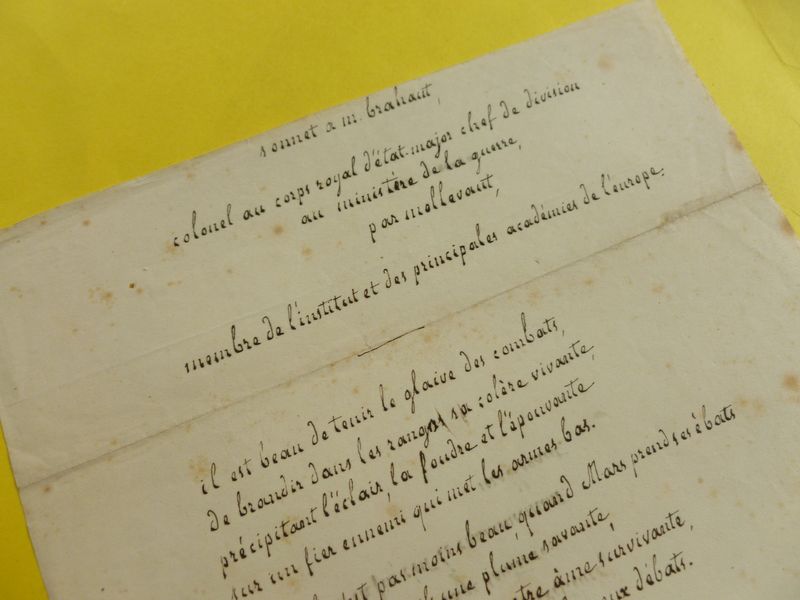 sonnet a m. brahaut,
colonel au corps royal d'état-major chef de division
au ministère de la guerre,
par mollevaut,
membre de l'institut et des principales académies de l'europe.
il est beau de tenir le glaive des combats,
de brandir dans les rangs sa colère vivante,
précipitant l'éclair, la foudre et l'épouvante
sur un fier ennemi qui met les armes bas.
pas moins beau, quand Mars prend ses ébats
d'une plume savante,
âme survivante,
débats.